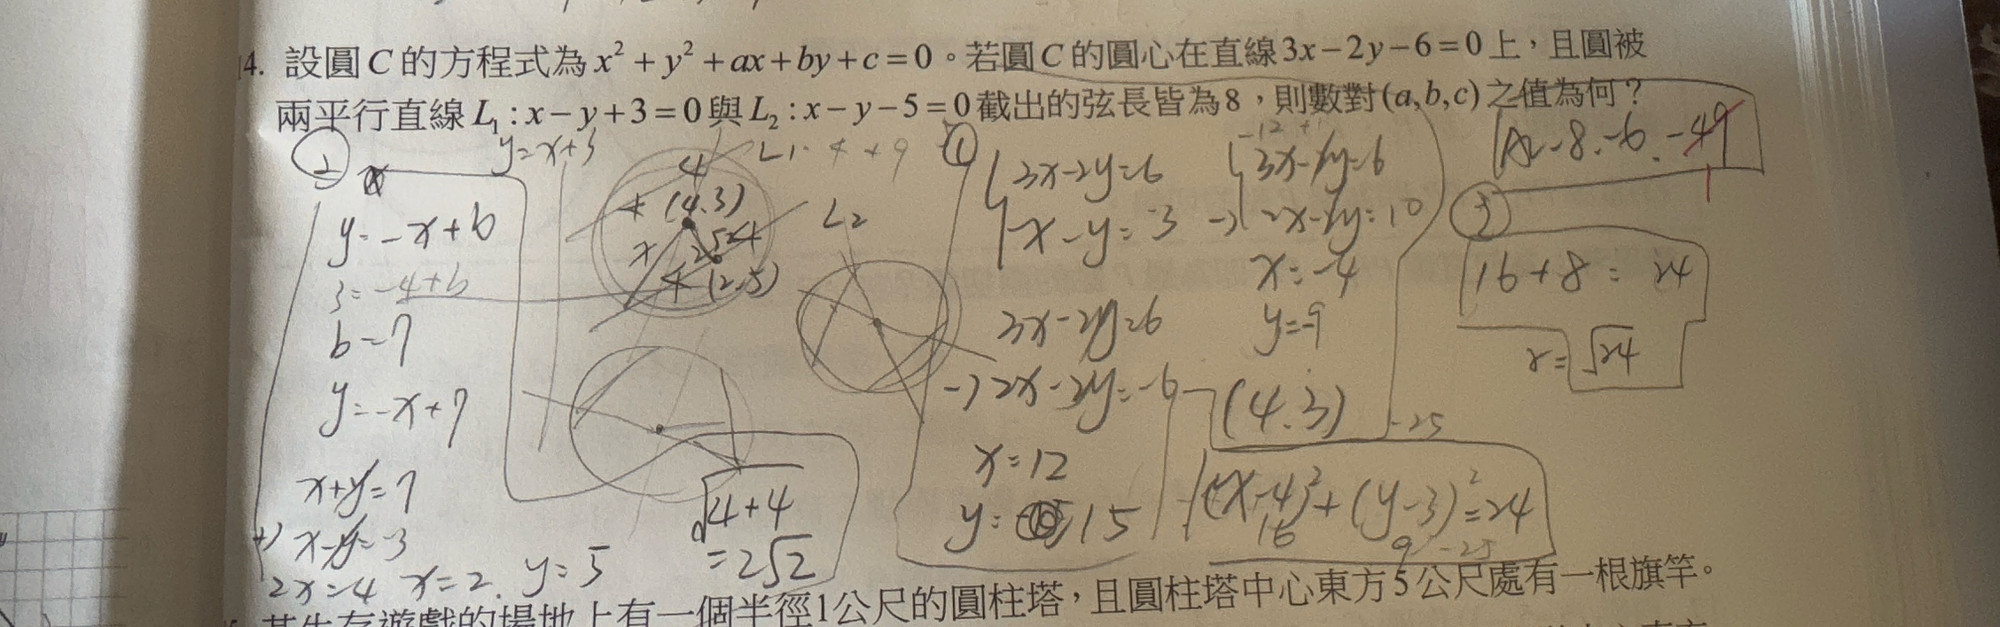 14. 設圓C的方程式為x²+y²+ax+by+c=0。若圓C的圓心在直線3x−2y−6=0上，且圓被
兩平行直線L₁:x−y+3=0與L₂:x−y−5=0截出的弦長皆為8，則數對(a,b,c)之值為何？
②
y=x+3
y=-x+b
3=-4+b
b=7
y=-x+7
x+y=7
+) x-y=-3
2x=4 x=2. y=5
4
L1
(4.3)
L2
4
(2.5)
√4+4
=2√2
①
3x-2y=6
x-y=-3
3x-2y=6
-) 2x-2y=-6
x=12
y=15
3x-2y=6
-) 2x-2y=10
x=-4
y=-9
(4.3)
-25
(x-4)²+(y-3)²=24
16
9 -25
A: -8. -6. -49
1
③
16+8=24
r=√24
某生存遊戲的場地上有一個半徑1公尺的圓柱塔，且圓柱塔中心東方5公尺處有一根旗竿。